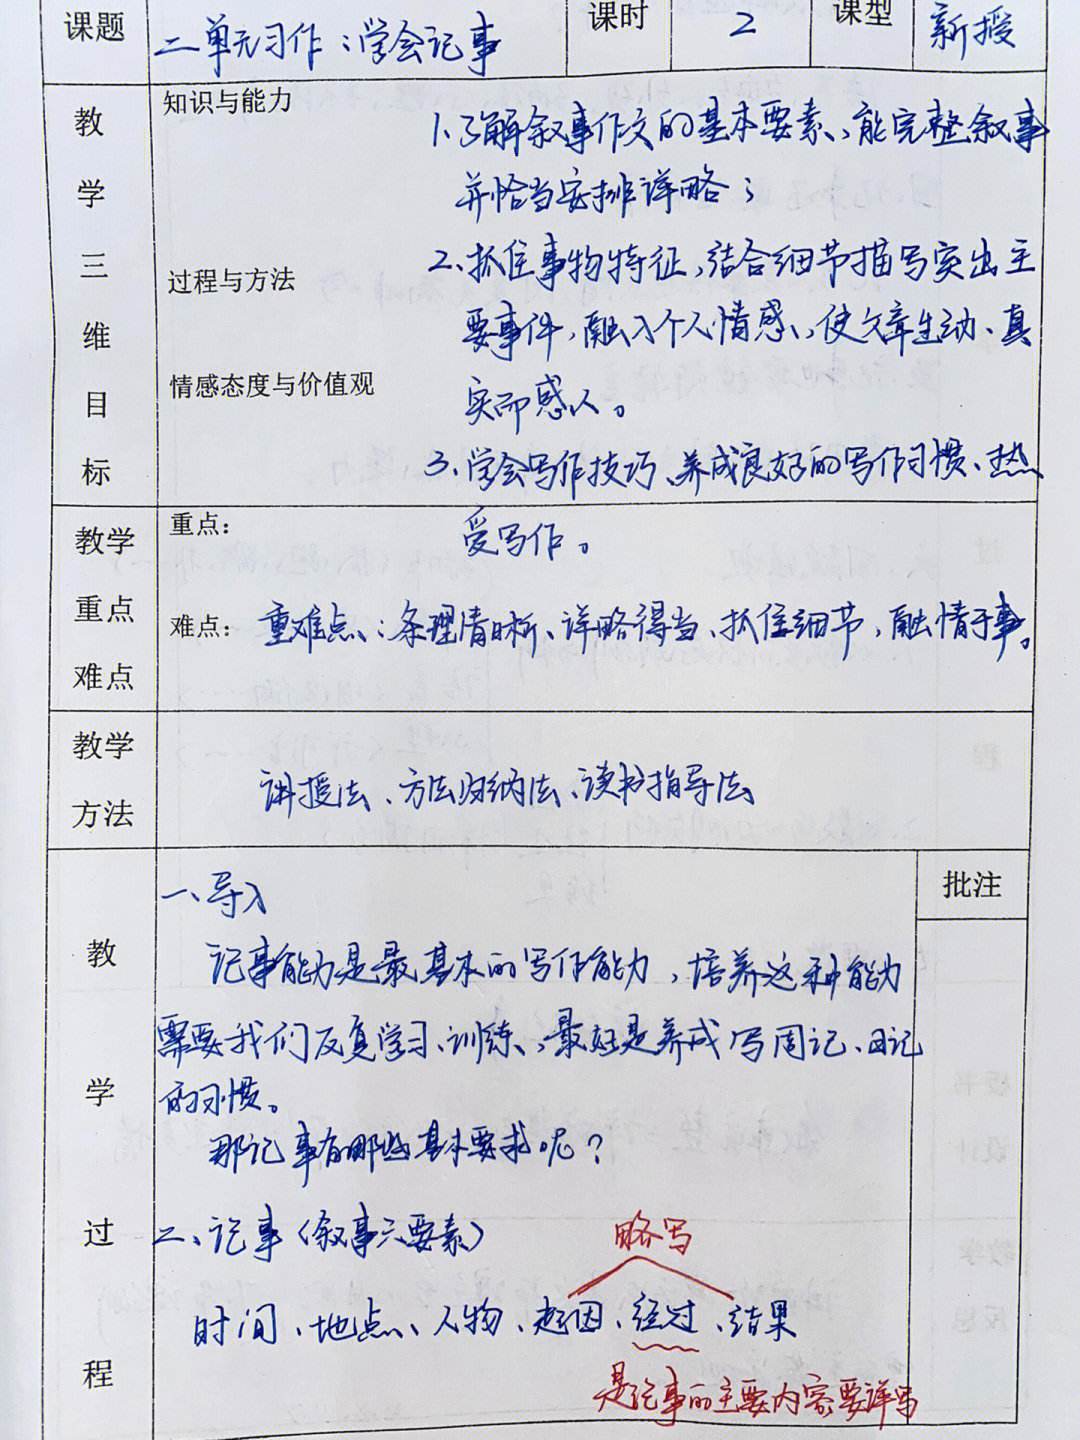 课题 二单元习作：学会记事 课时 2 课型 新授
教学三维目标
知识与能力
1.了解叙事作文的基本要素，能完整叙事
并恰当安排详略；
过程与方法
2.抓住事物特征，结合细节描写突出主
要事件，融入个人情感，使文章生动、真
情感态度与价值观
实而感人。
3.学会写作技巧、养成良好的写作习惯、热
爱写作。
教学重点难点
重点：
难点：
重难点：条理清晰、详略得当、抓住细节，融情于事。
教学方法
讲授法、方法归纳法、读书指导法
教学过程
批注
一、导入
记事能力是最基本的写作能力，培养这种能力
需要我们反复学习、训练，最好是养成写周记、日记
的习惯。
那记事有哪些基本要求呢？
二、记事（叙事六要素）
略写
时间、地点、人物、起因、经过、结果
是记事的主要内容要详写